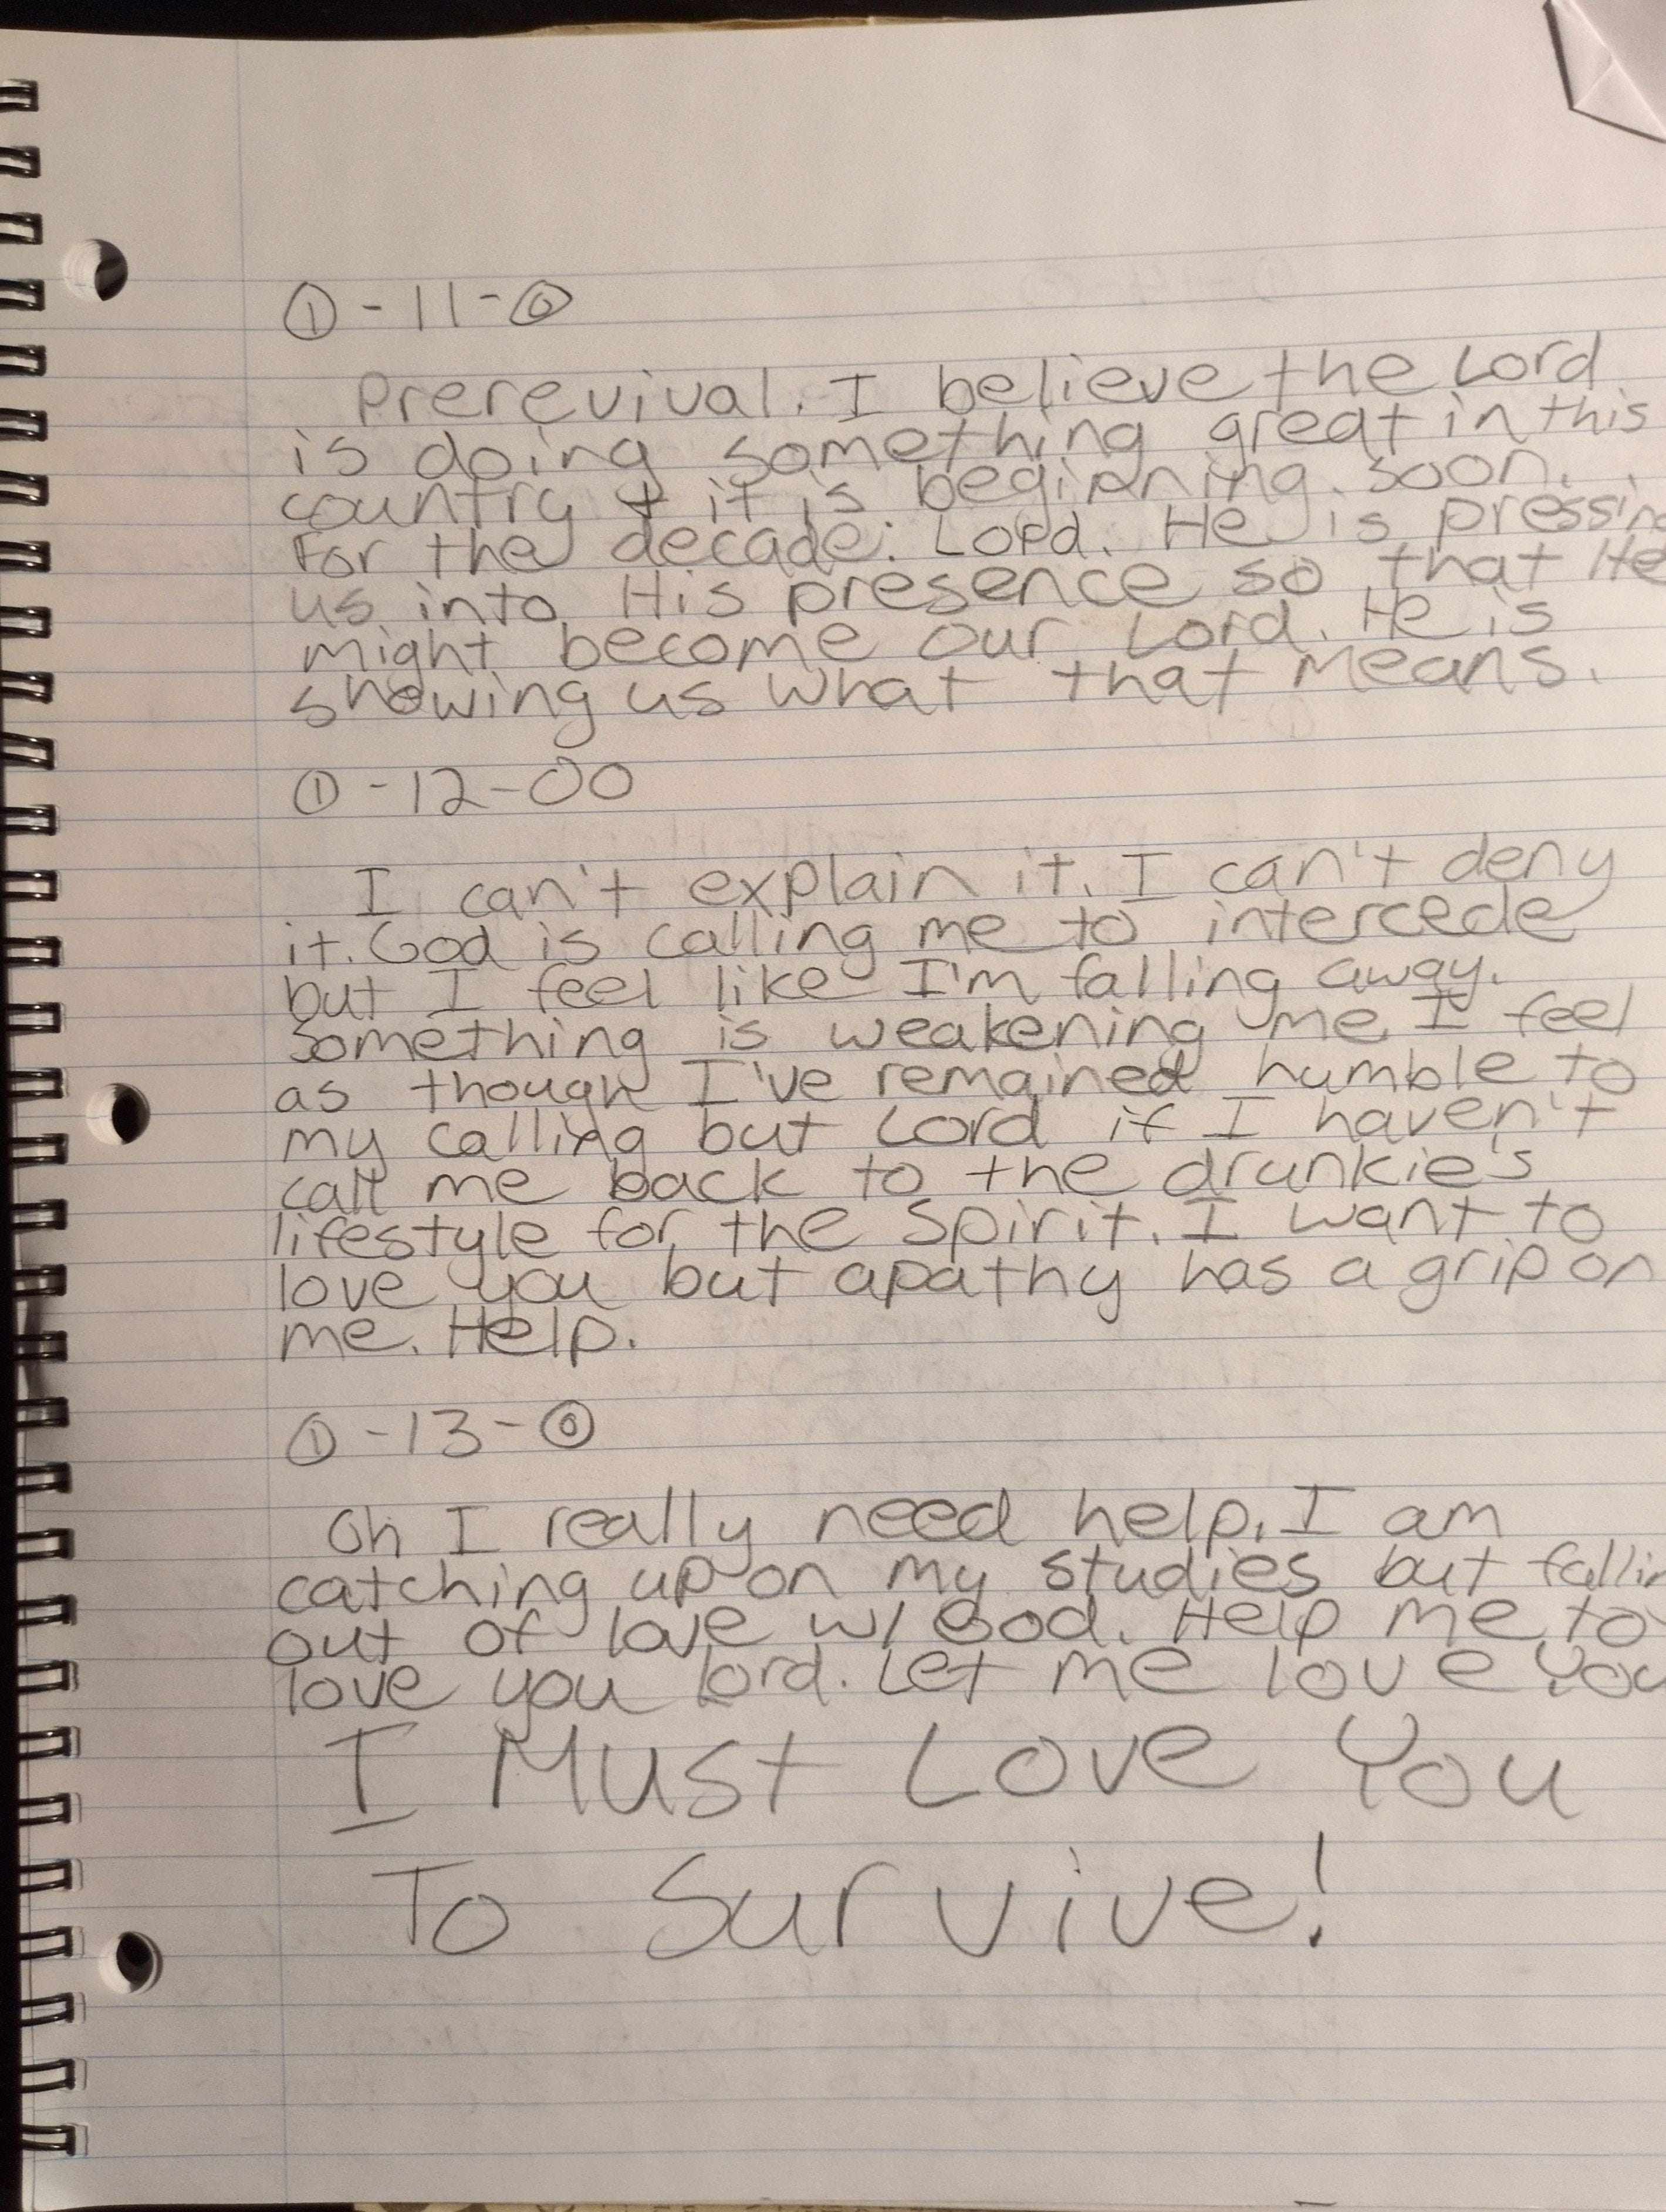 ①-11-⓪
Prerevival. I believe the Lord
is doing something great in this
country + it is beginning soon.
For the decade: Lord. He is pressing
us into His presence so that He
might become our Lord. He is
showing us what that means.
①-12-00
I can't explain it. I can't deny
it. God is calling me to intercede
but I feel like I'm falling away.
Something is weakening me. I feel
as though I've remained humble to
my calling but Lord if I haven't
call me back to the drunkie's
lifestyle for the Spirit. I want to
love you but apathy has a grip on
me. Help.
①-13-⓪
Oh I really need help. I am
catching up on my studies but fallin
out of love w/ God. Help me to
love you lord. Let me love You
I Must Love You
To Survive!